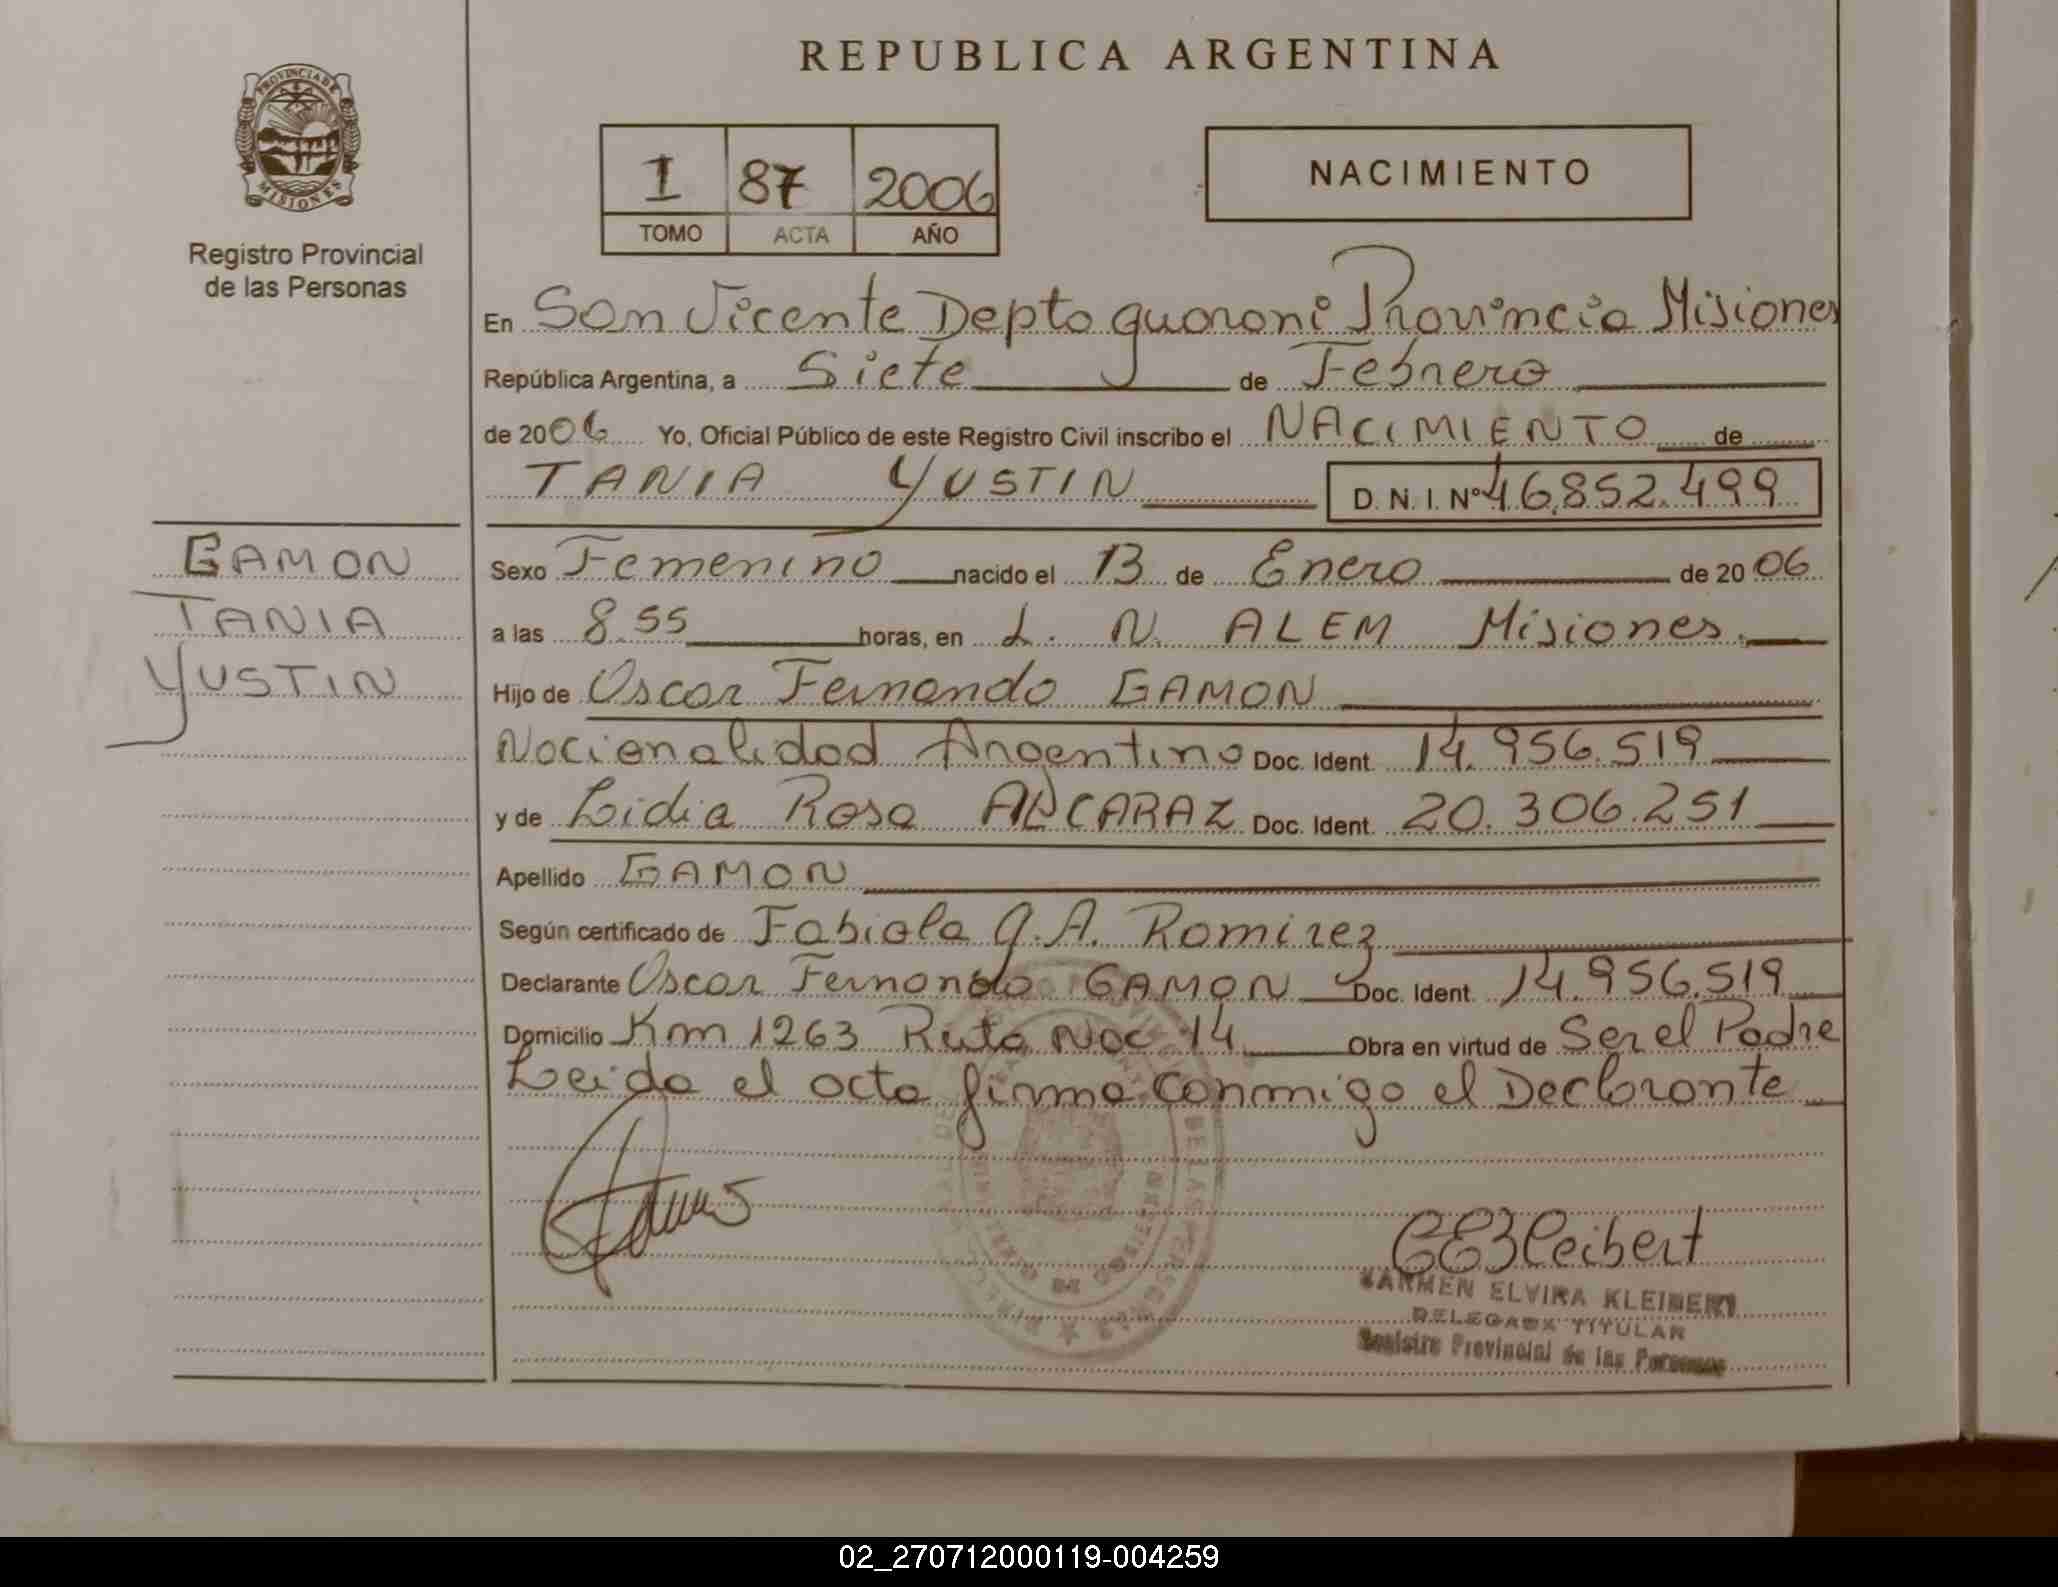 REPUBLICA ARGENTINA
PROVINCIA DE
MISIONES
Registro Provincial
de las Personas
I 87 2006
TOMO ACTA AÑO
NACIMIENTO
En San Vicente Depto guarani Provincia Misiones
República Argentina, a Siete de Febrero
de 2006 Yo, Oficial Público de este Registro Civil inscribo el NACIMIENTO de
TANIA YUSTIN D. N. I. Nº 46.852.499
GAMON
TANIA
YUSTIN
Sexo Femenino nacido el 13 de Enero de 2006
a las 8.55 horas, en L. N. ALEM Misiones.
Hijo de Oscar Fernando GAMON
Nacionalidad Argentino Doc. Ident. 14.956.519
y de Lidia Rosa ALCARAZ Doc. Ident. 20.306.251
Apellido GAMON
Según certificado de Fabiola G.A. Ramirez
Declarante Oscar Fernando GAMON Doc. Ident. 14.956.519
Domicilio Km 1263 Ruta Nac 14 Obra en virtud de Ser el Padre
Leida el acta firma conmigo el Declarante
CEKleibert
CARMEN ELVIRA KLEIBERT
DELEGADA TITULAR
Registro Provincial de las Personas
02_270712000119-004259